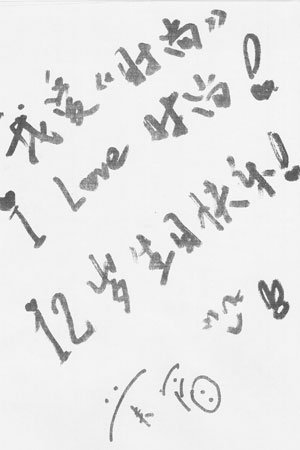 我爱“时尚”
I Love 时尚！
12岁生日快乐！